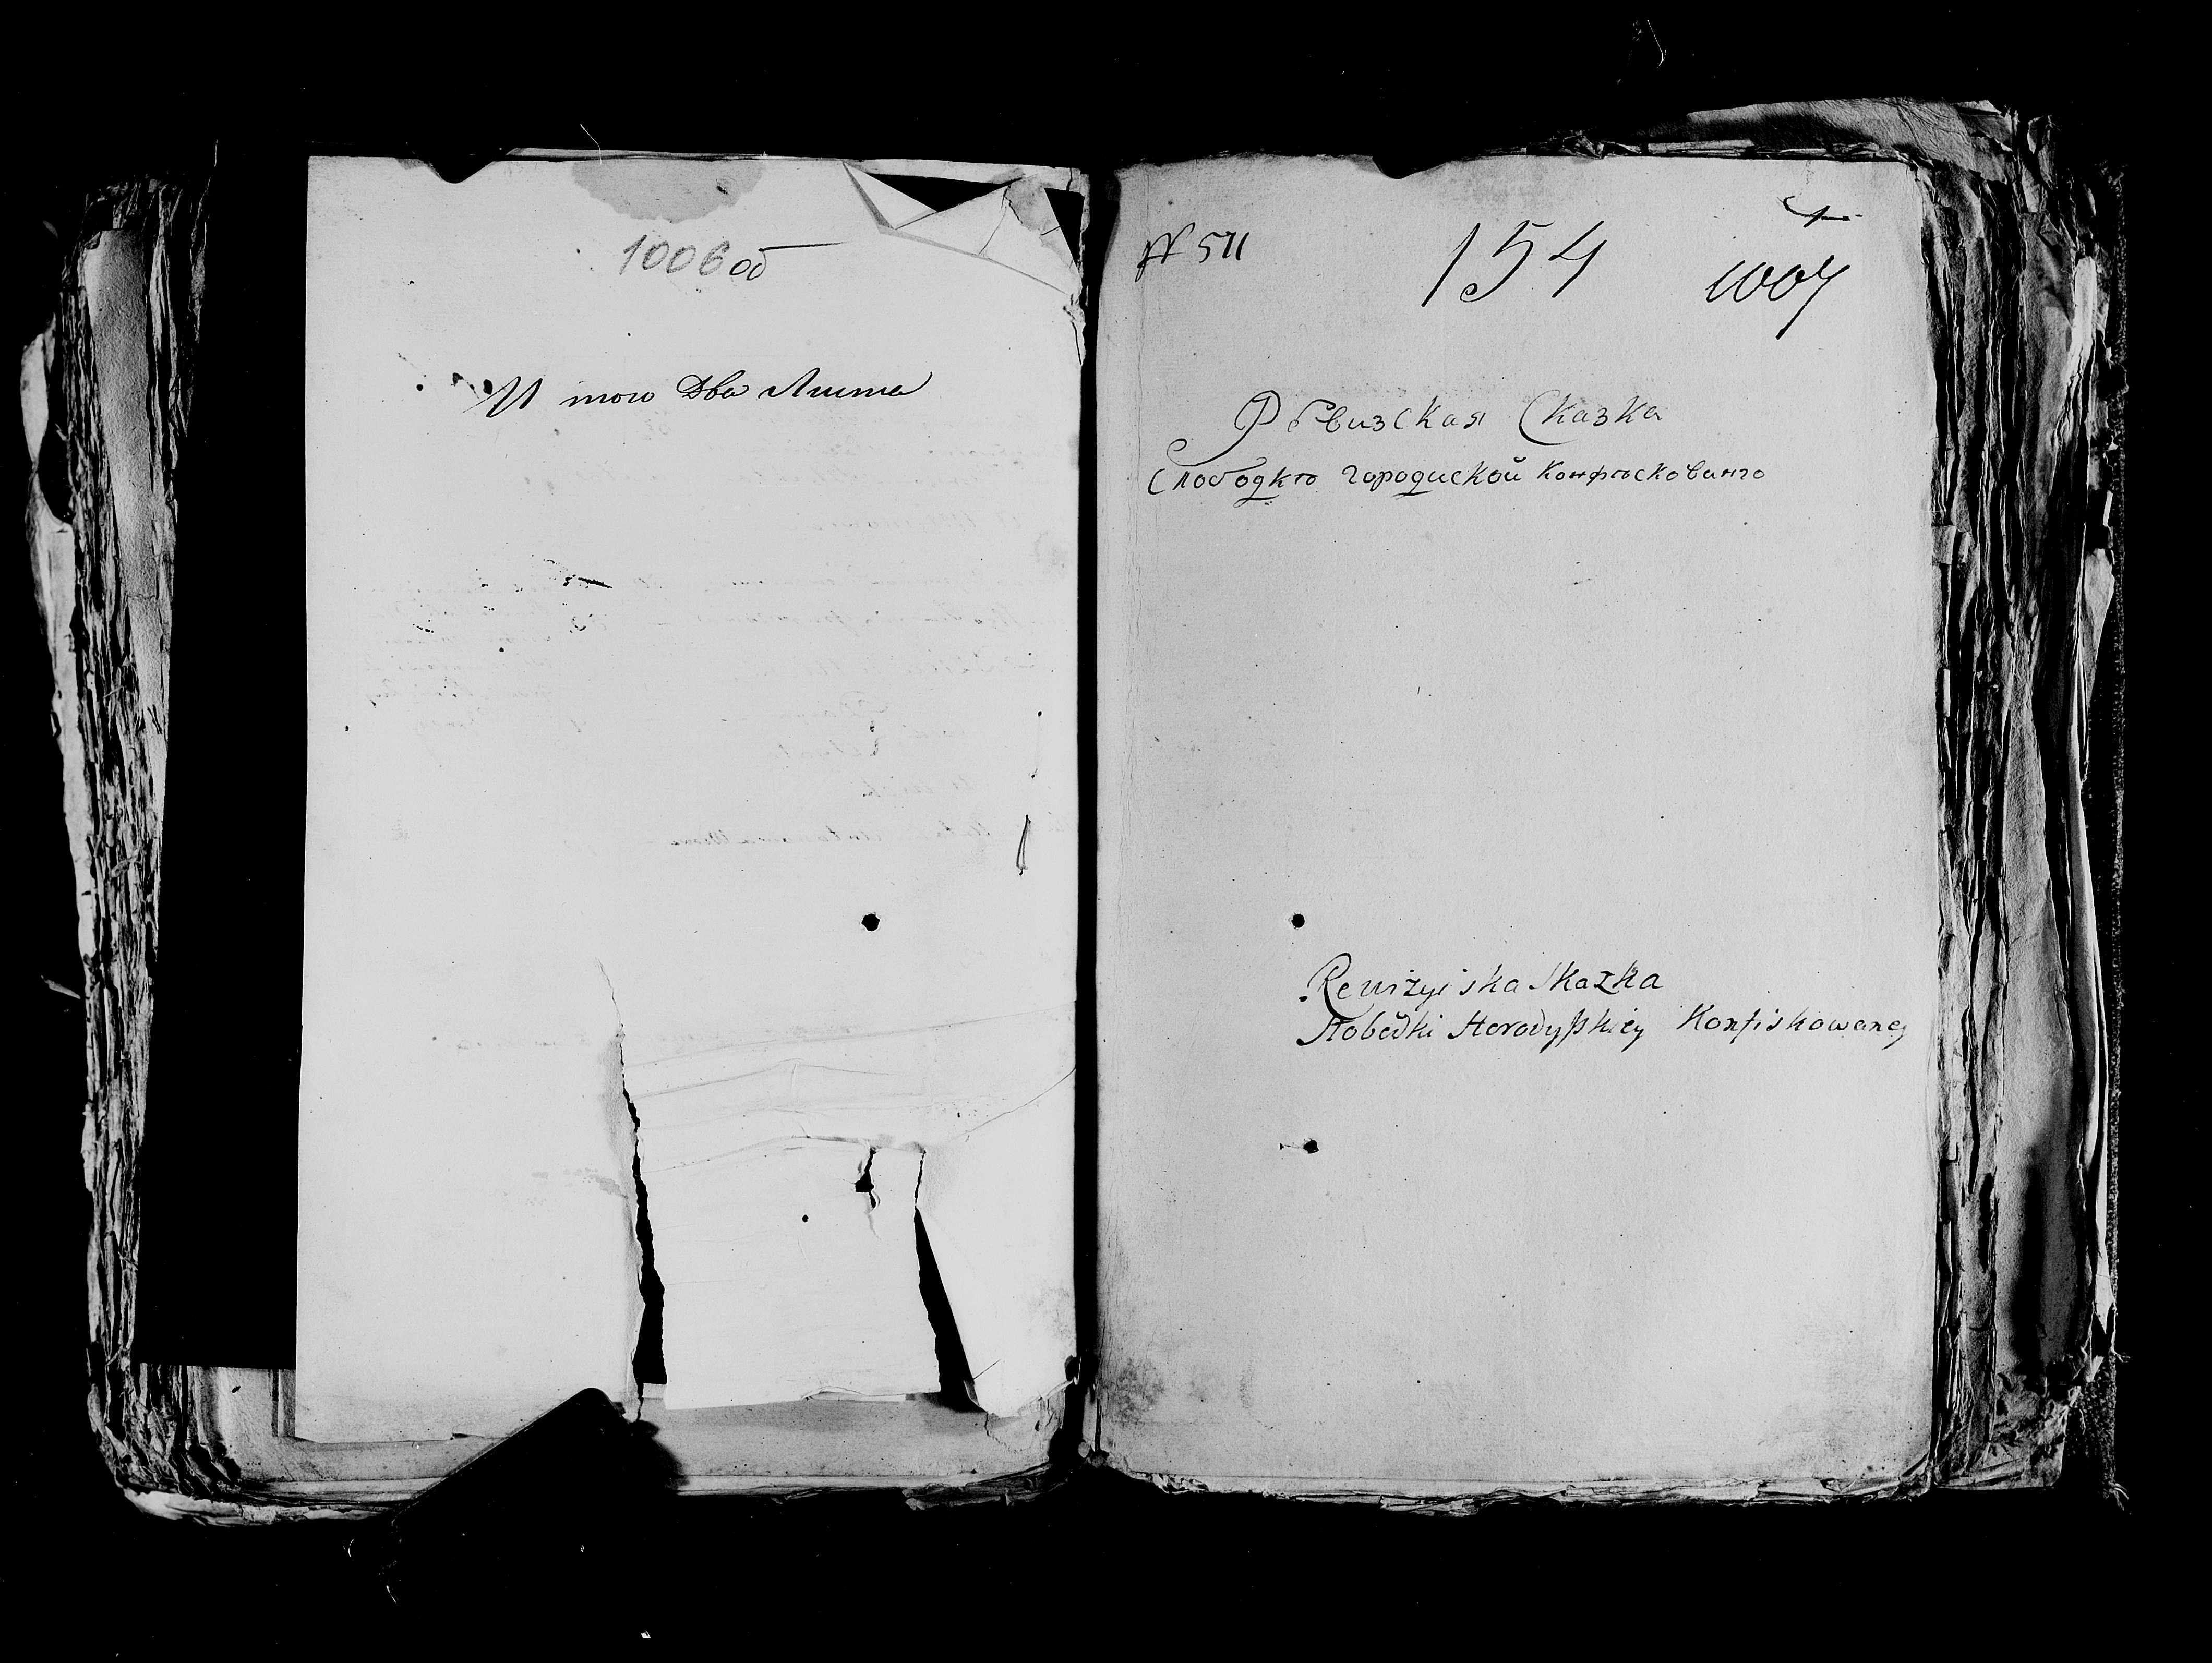 1006об
И того Два Листа
№ 511
154
1007
Ревизская Сказка
Слободкѣ городиской Конфѣскованго
Rewizyiska Skazka
Słobodki Horodyskiey Konfiskowaney